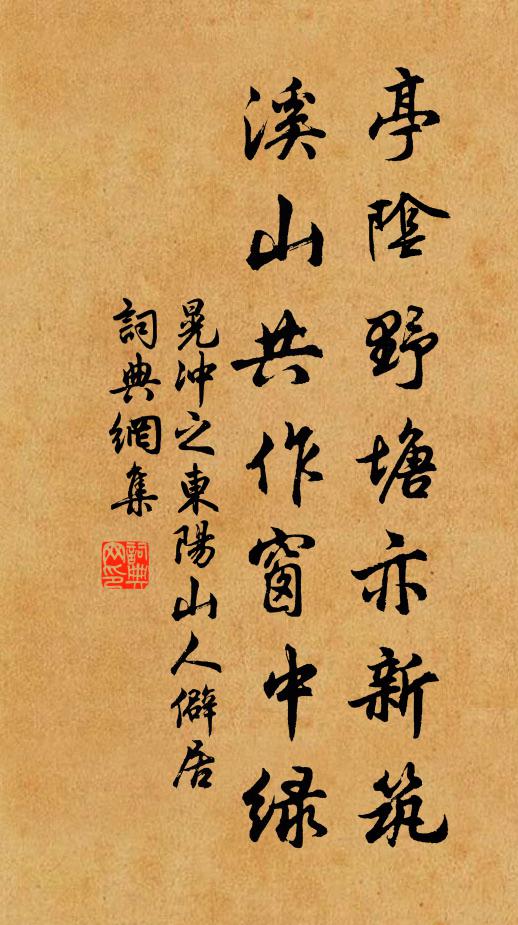 亭陰野塘亦新筑
溪山共作窗中緑
晁冲之東陽山人僻居
詞典網集
詞典网印